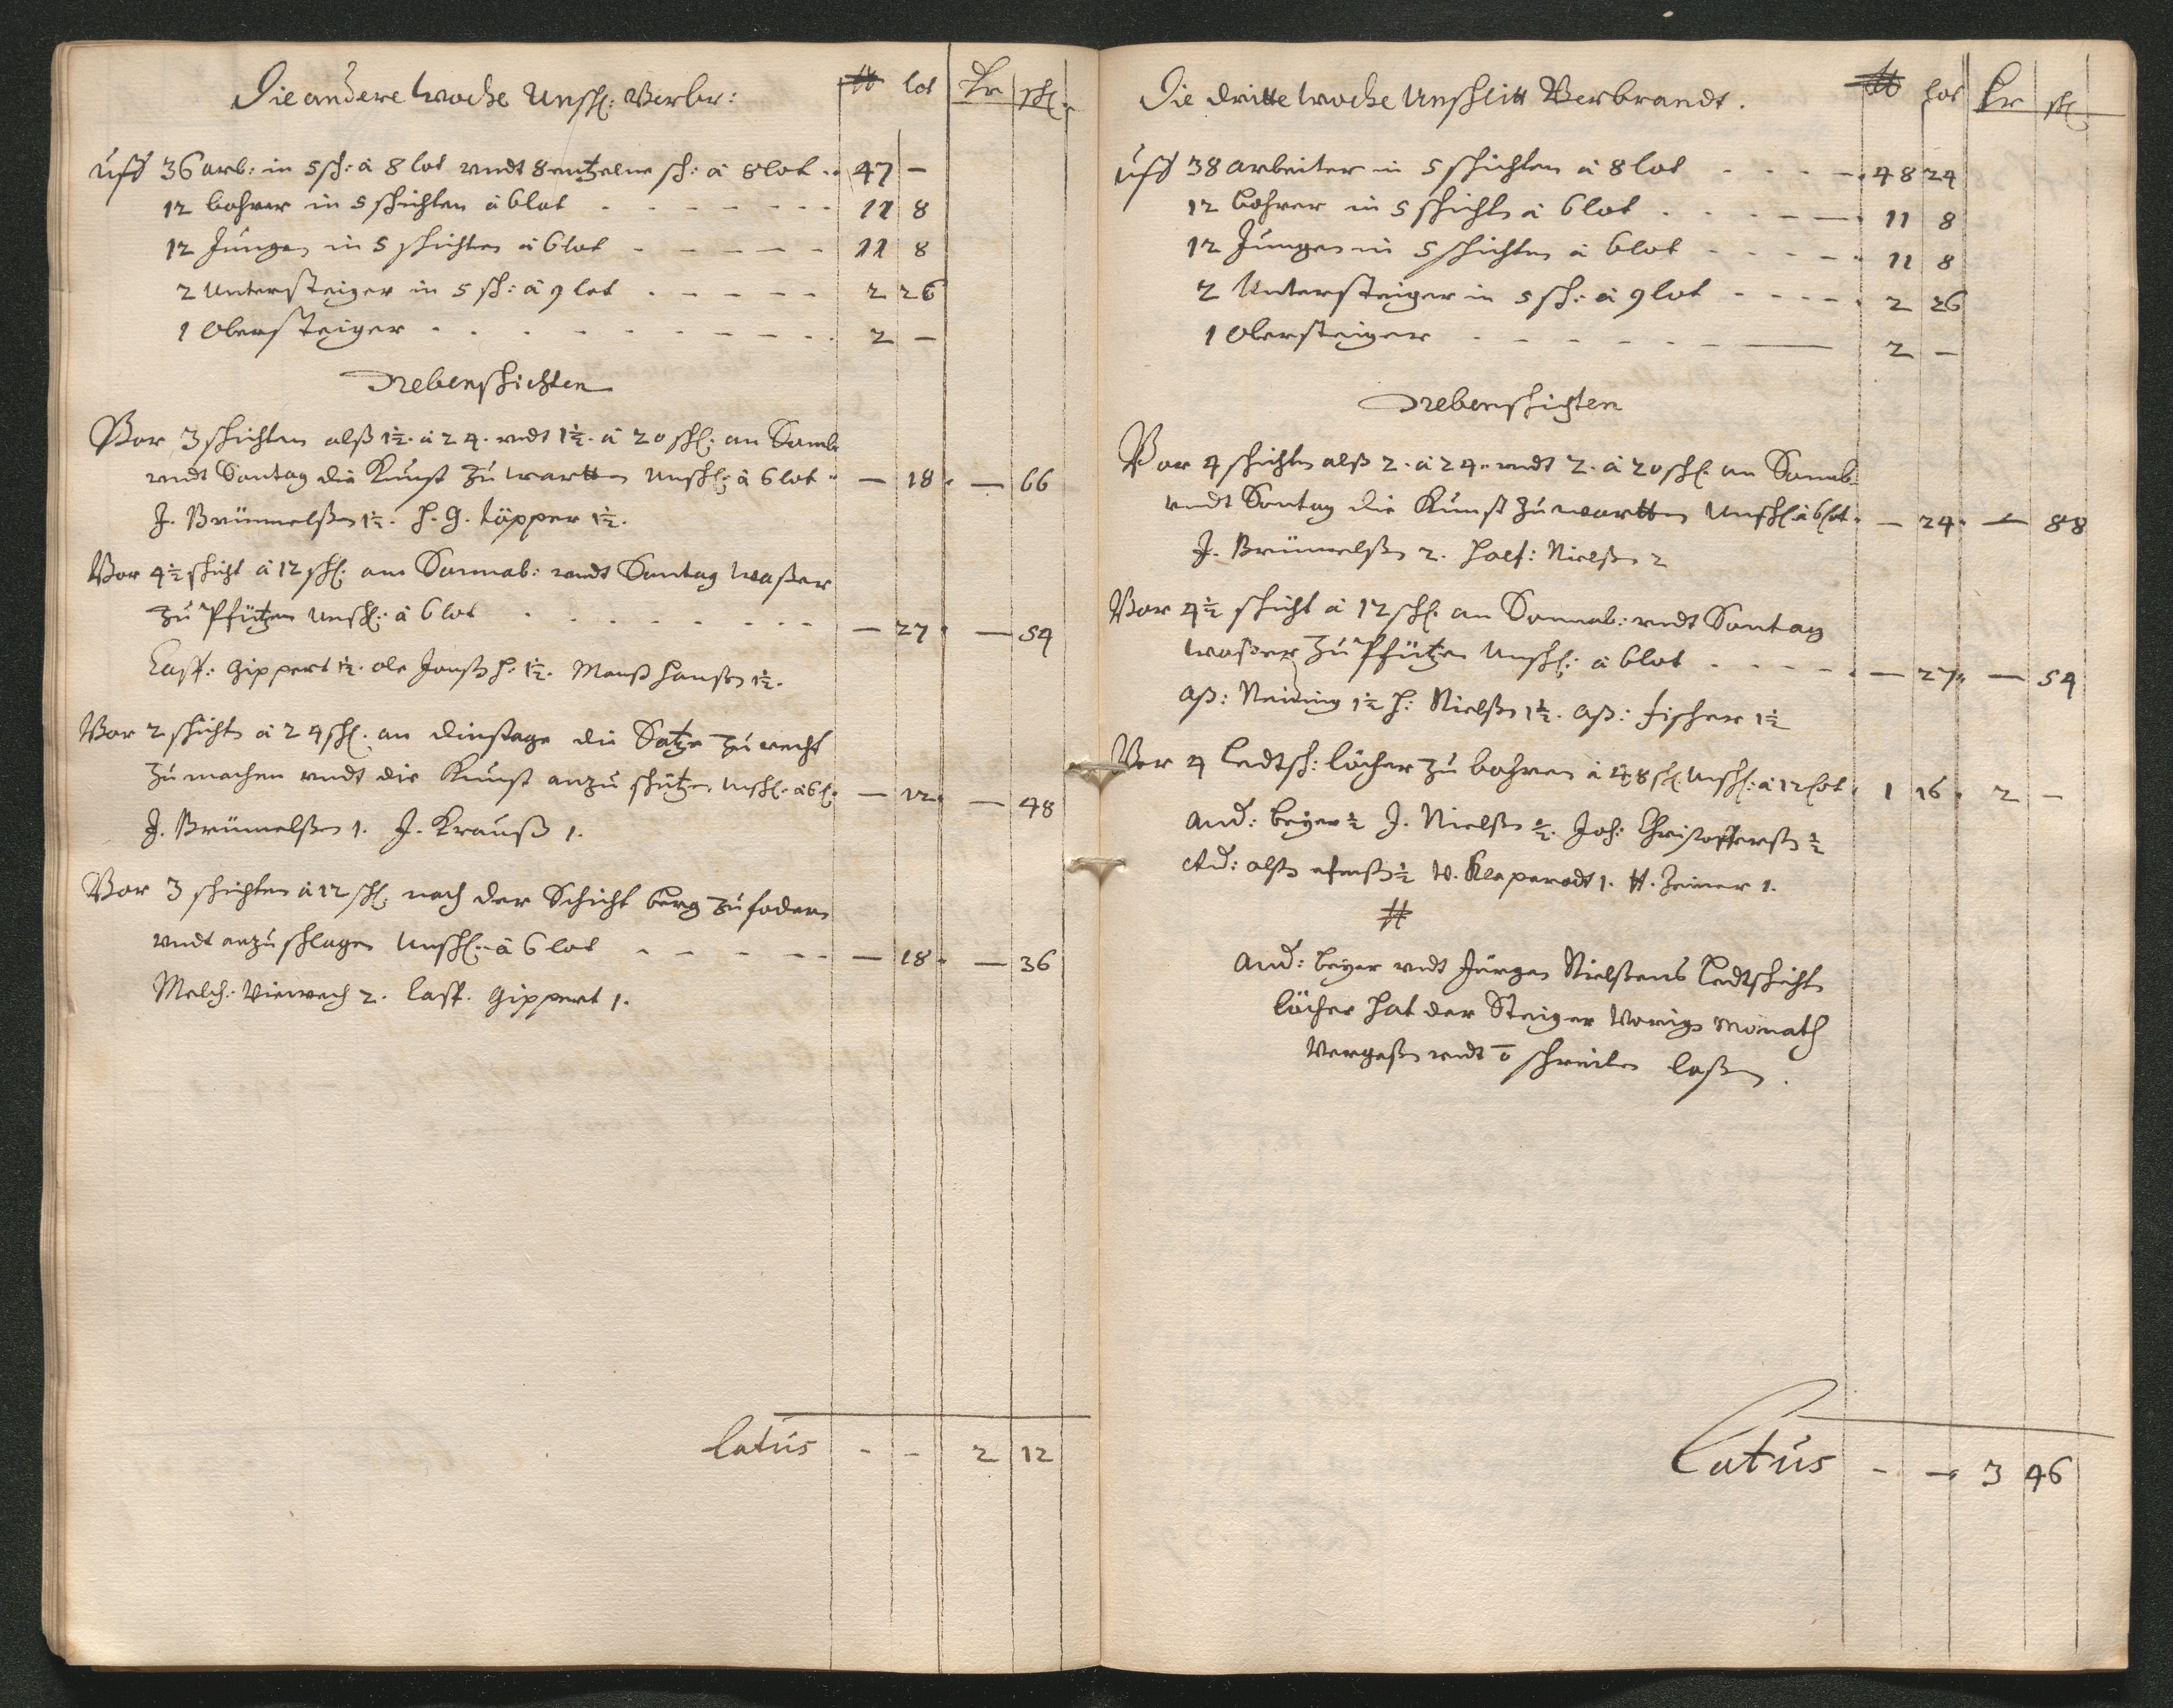 Die andere Woche Unschl: Verbr: ℔ lot Dr schl
Uff 36 arb: in 5 sch: à 8 lot vndt 8 entzelne sch: à 8 lot 47 —
12 bohrer in 5 schichten à 6 lot 11 8
12 Jungen in 5 schichten à 6 lot 11 8
2 Untersteiger in 5 sch: à 9 lot 2 26
1 Obersteiger 2 —
Nebenschichten
Vor 3 schichten alß 1½. à 24. vndt 1½. à 20 schl: an Sonab
vndt Sontag die Kunst zu wartten Unschl: à 6 lot — 18 — 66
J. Brünnelßen 1½. H. G. Töpper 1½.
Vor 4½ schicht à 12 schl: am Sonnab: vndt Sontag Waßer
zu Pfützen Unschl: à 6 lot — 27 — 54
Casp: Gippert 1½. Ole Jonß H: 1½. Monß Hanßen 1½.
Vor 2 schicht à 24 schl. an dinstage die Sätze zu recht
zu machen vndt die Kunst anzu schützen Unschl: à 6 l: — 12 — 48
J. Brünnelßen 1. J. Krauß 1.
Vor 3 schichten à 12 schl: nach der Schicht berg zu fodern
vndt anzuschlagen Unschl: à 6 lot — 18 — 36
Melch: Viewech 2. Casp. Gippert 1.
Latus - - 2 12
Die dritte Woche Unschlitt Verbrandt. ℔ lot Dr schl
Uff 38 arbeiter in 5 schichten à 8 lot 48 24
12 bohrer in 5 schicht à 6 lot 11 8
12 Jungen in 5 schichten à 6 lot 11 8
2 Untersteiger in 5 sch: à 9 lot 2 26
1 Obersteiger 2 —
Nebenschichten
Vor 4 schichten alß 2. à 24. vndt 2. à 20 schl an Sonab
vndt Sontag die Kunst zu wartten Unschl à 6 lot — 24 — 88
J. Brünnelßen 2. Half: Nielßen 2
Vor 4½ schicht à 12 schl an Sonnab: vndt Sontag
waßer zu Pfützen Unschl: à 6 lot — 27 — 54
Aß: 1½ H: Nielßen 1½. Aß: Fischer 1½
Vor 4 Ledtsch: löcher zu bohren à 48 schl: Unschl: à 12 lot 1 16 2 —
And: beyer ½ J. Nielßen ½. Joh: Christofferßen ½
And: ½ V. Kleperodt 1. H. Zeiner 1.
#
And: beyer vndt Jürgen Nielßens Ledtschicht
löcher hat der Steiger Vorigs Monath
Vergeßen vndt ō schreiben laßen.
Latus - - 3 46